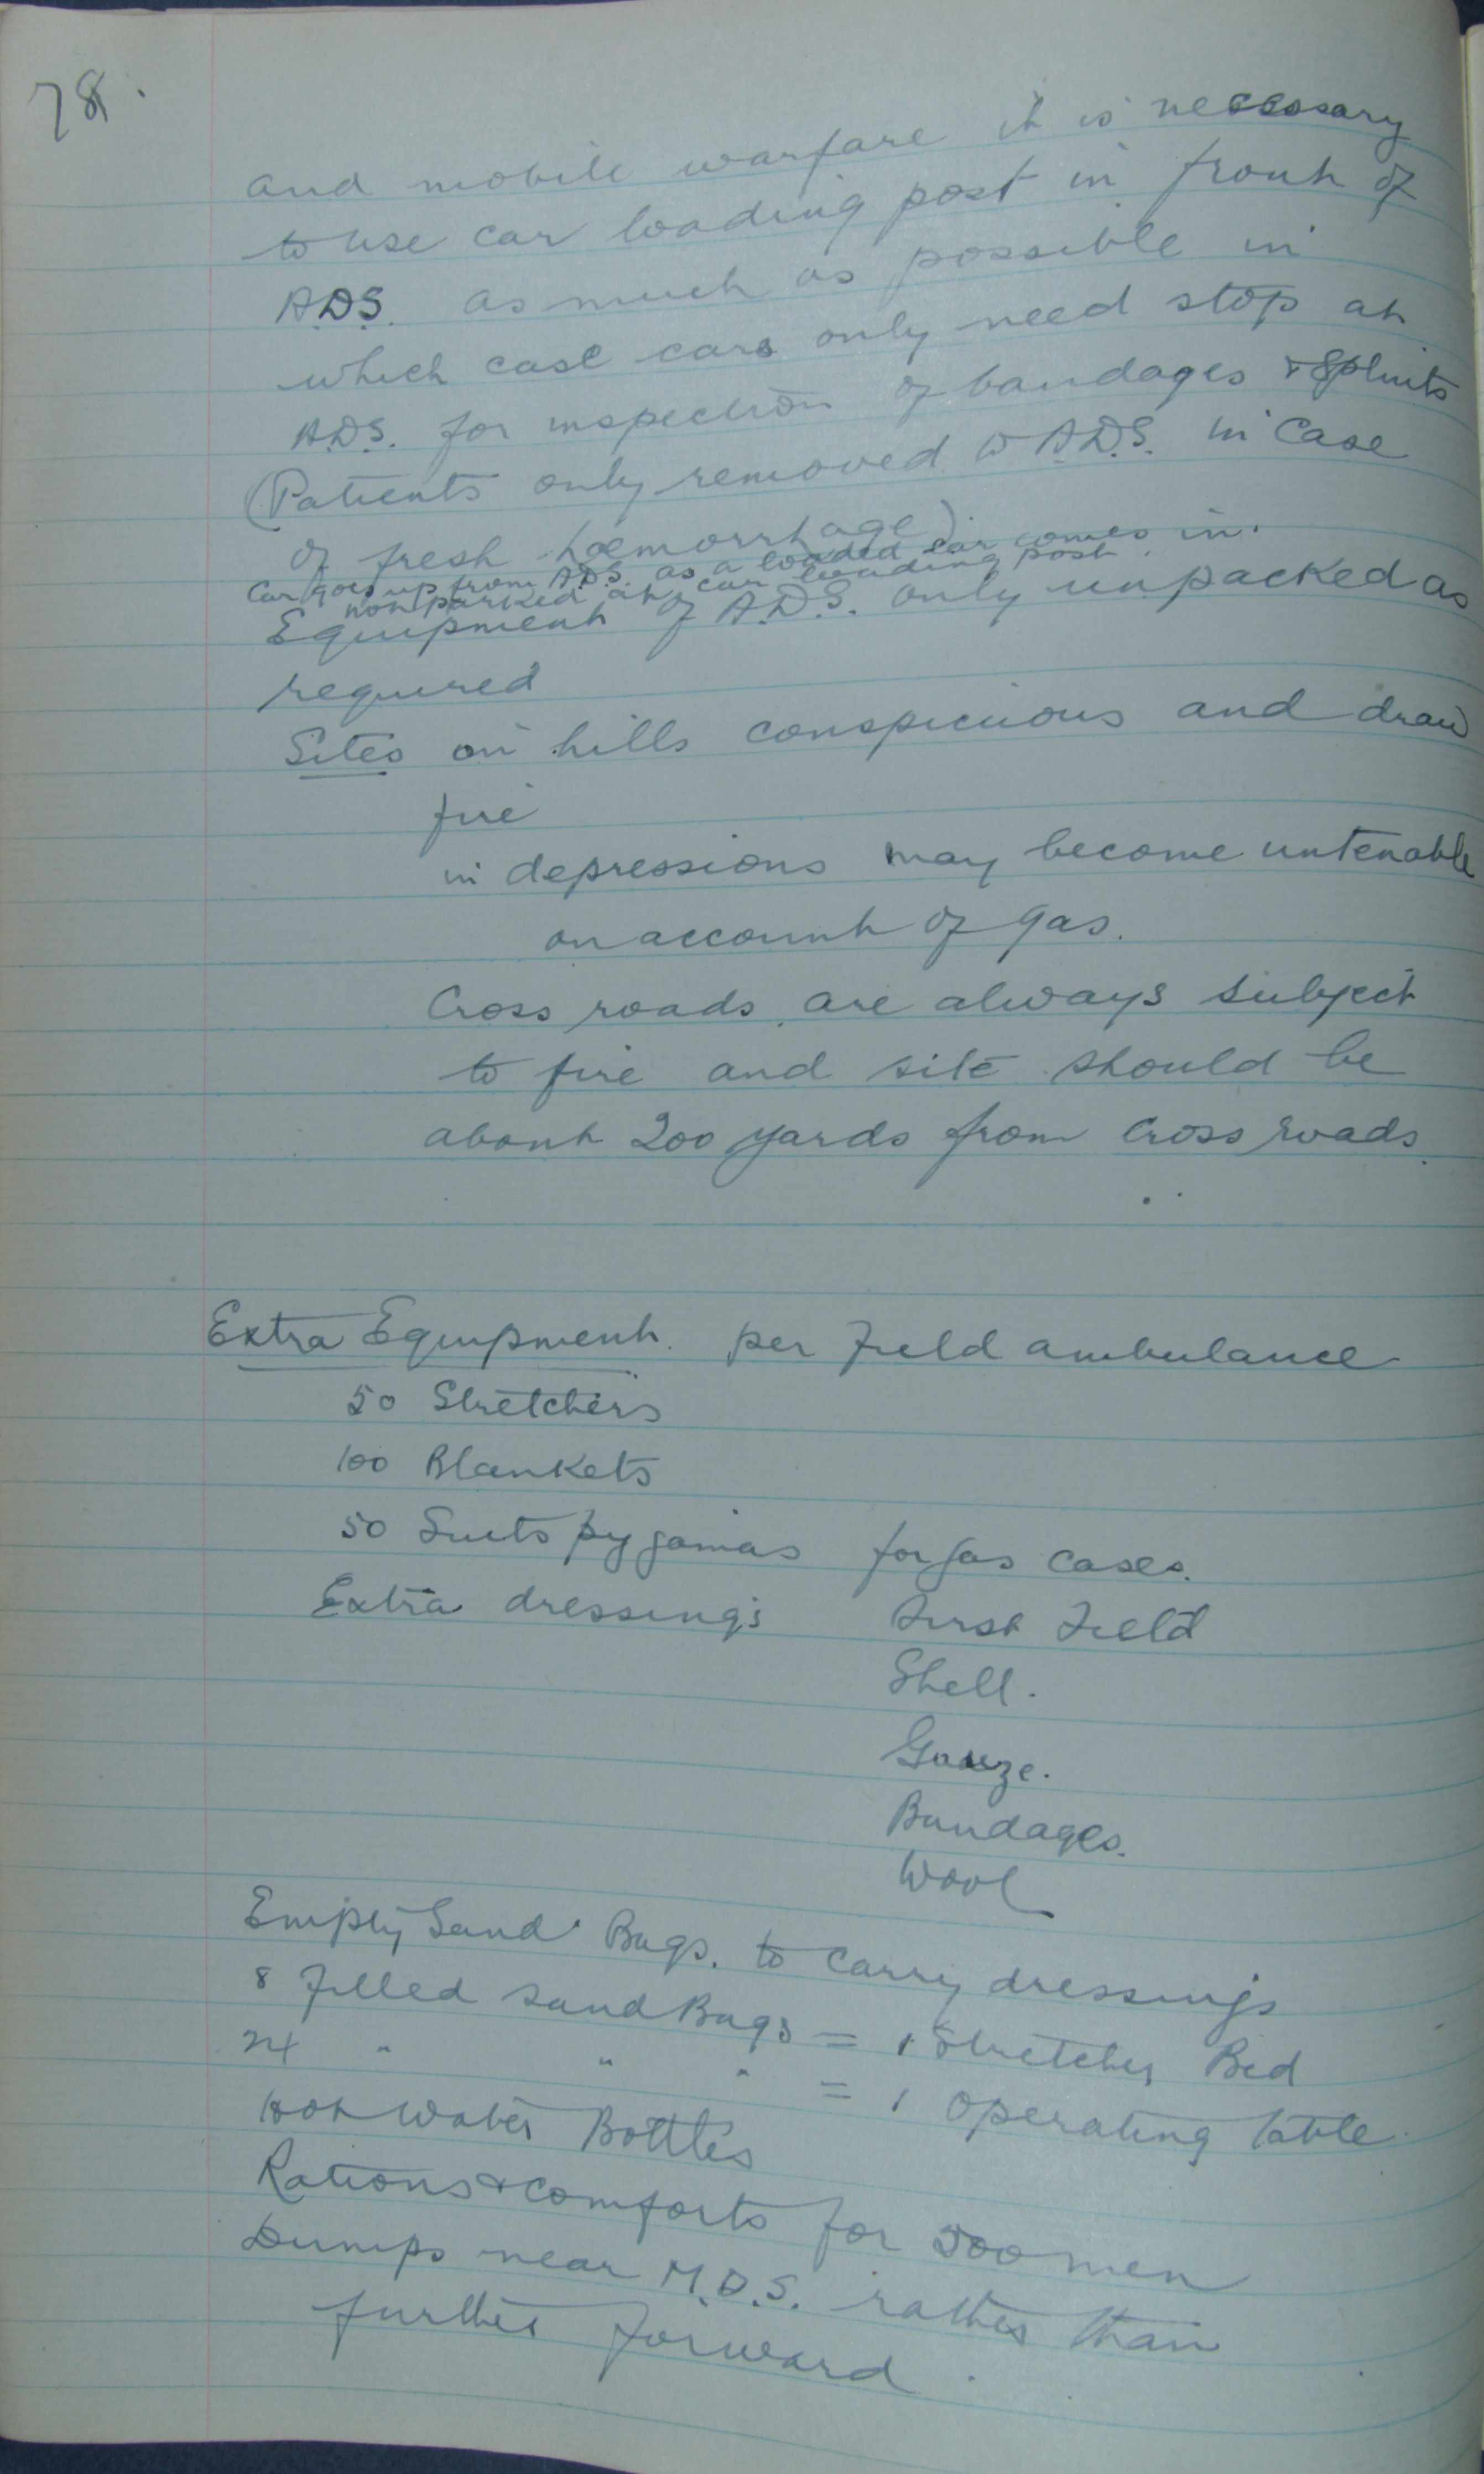 78.
and mobile warfare it is necessary
to use car loading post in front of
A.D.S. as much as possible in
which case cars only need stop at
A.D.S. for inspection of bandages & splints
(Patients only removed to A.D.S. in case
of fresh hæmorrhage).
Car goes up from A.D.S. as a loaded car comes in.
not parked at car loading post.
Equipment of A.D.S. only unpacked as
required
Sites on hills conspicuous and draw
fire
in depressions may become untenable
on account of gas.
Cross roads are always subject
to fire and site should be
about 200 yards from cross roads.
Extra Equipment. per Field ambulance
50 Stretchers
100 Blankets
50 Suits pygamas for gas cases.
Extra dressings First Field
Shell.
Gauze.
Bandages.
Wool
Empty Sand Bags. to carry dressings
8 Filled sand Bags = 1 Stretcher Bed
24 " " " = 1 operating table.
Hot water Bottles
Rations & comforts for 500 men
Dumps near M.D.S. rather than
further forward.